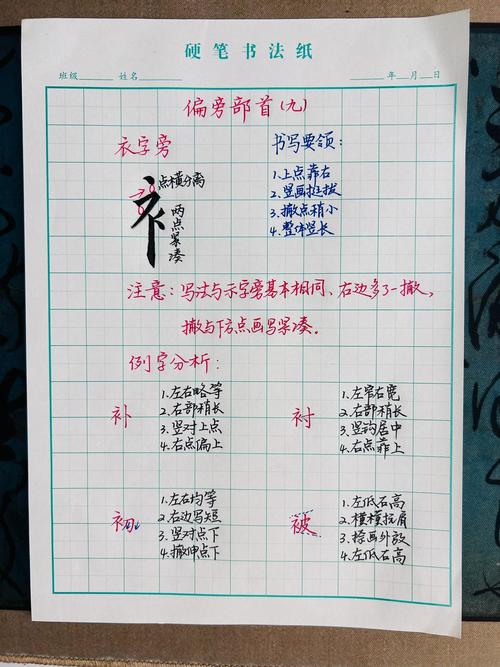 硬笔书法纸
班级 姓名 年 月 日
偏旁部首(九)
衣字旁
点横分离
衤
两点紧凑
书写要领:
1.上点靠右
2.竖画挺拔
3.撇点稍小
4.整体竖长
注意:写法与示字旁基本相同、右边多了一撇,
撇与下方点画写紧凑.
例字分析:
补
1.左右略等
2.右部稍长
3.竖对上点
4.右点偏上
衬
1.左窄右宽
2.右部稍长
3.竖钩居中
4.右点靠上
初
1.左右均等
2.右边写短
3.竖对点下
4.撇伸点下
被
1.左低右高
2.横横抗肩
3.捺画外放
4.左低右高